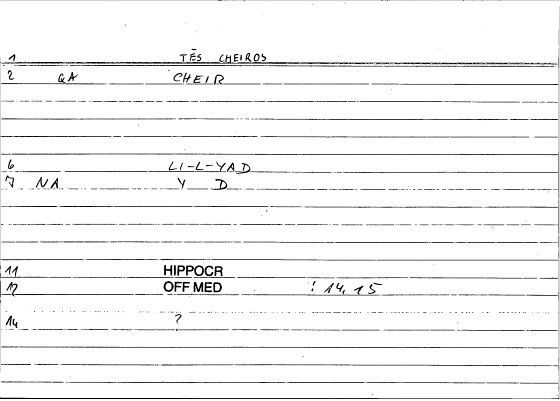 1 TĒS CHEIROS
2 QA CHEIR
6 LI-L-YAD
7 NA Y D
11 HIPPOCR
12 OFF MED ! 14, 15
14 ?